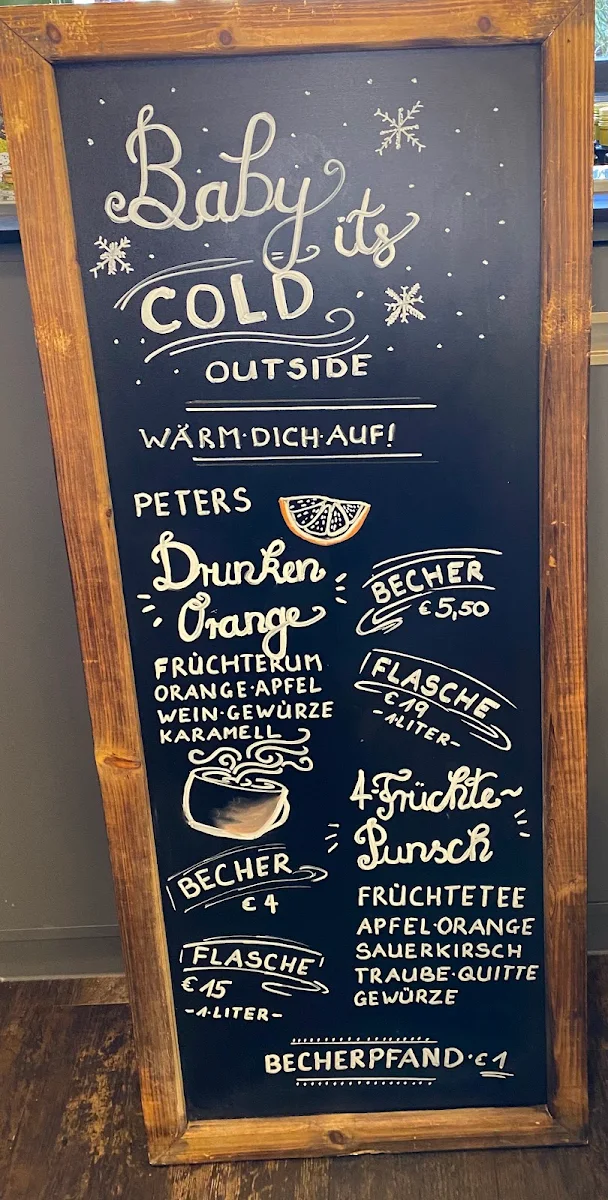 Baby
its
COLD
OUTSIDE
WÄRM·DICH·AUF!
PETERS
Drunken
Orange
FRÜCHTERUM
ORANGE·APFEL
WEIN·GEWÜRZE
KARAMELL
BECHER
€ 5,50
FLASCHE
€ 19
-1·LITER-
4-Früchte~
Punsch
FRÜCHTETEE
APFEL·ORANGE
SAUERKIRSCH
TRAUBE·QUITTE
GEWÜRZE
BECHER
€ 4
FLASCHE
€ 15
-1·LITER-
BECHERPFAND·€ 1